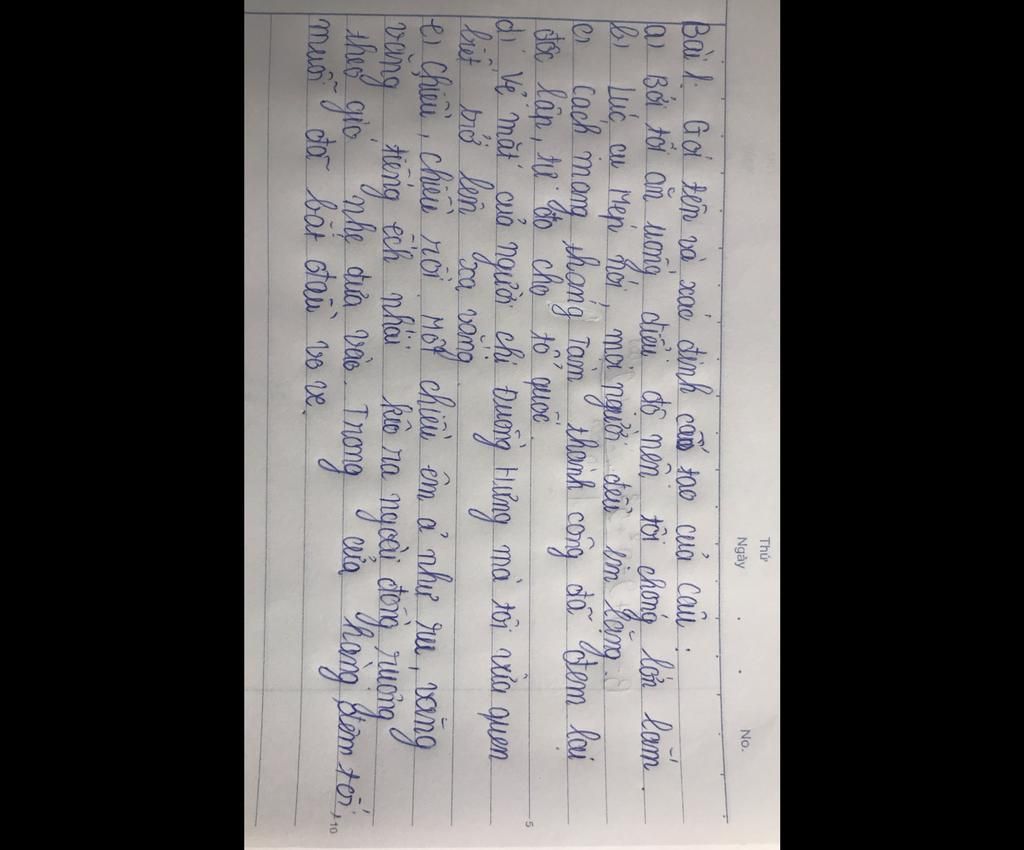 Thứ
Ngày
No.
Bài 1: Gọi tên và xác định cấu tạo của câu:
a) Bởi tôi ăn uống điều độ nên tôi chóng lớn lắm.
b) Lúc cu Mẹp nói, mọi người đều im lặng.
c) Cách mạng tháng Tám thành công đã đem lại
độc lập, tự do cho tổ quốc.
d) Vẻ mặt của người chị Đuồng Hưng mà tôi vừa quen
biết trở lên xa vắng
e) Chiều, chiều rồi. Một chiều êm ả như ru, văng
vẳng tiếng ếch nhái kêu ra ngoài đồng ruộng
theo gió nhẹ đưa vào. Trong cửa hàng đêm tối,
muỗi đã bắt đầu vo ve.
5
10